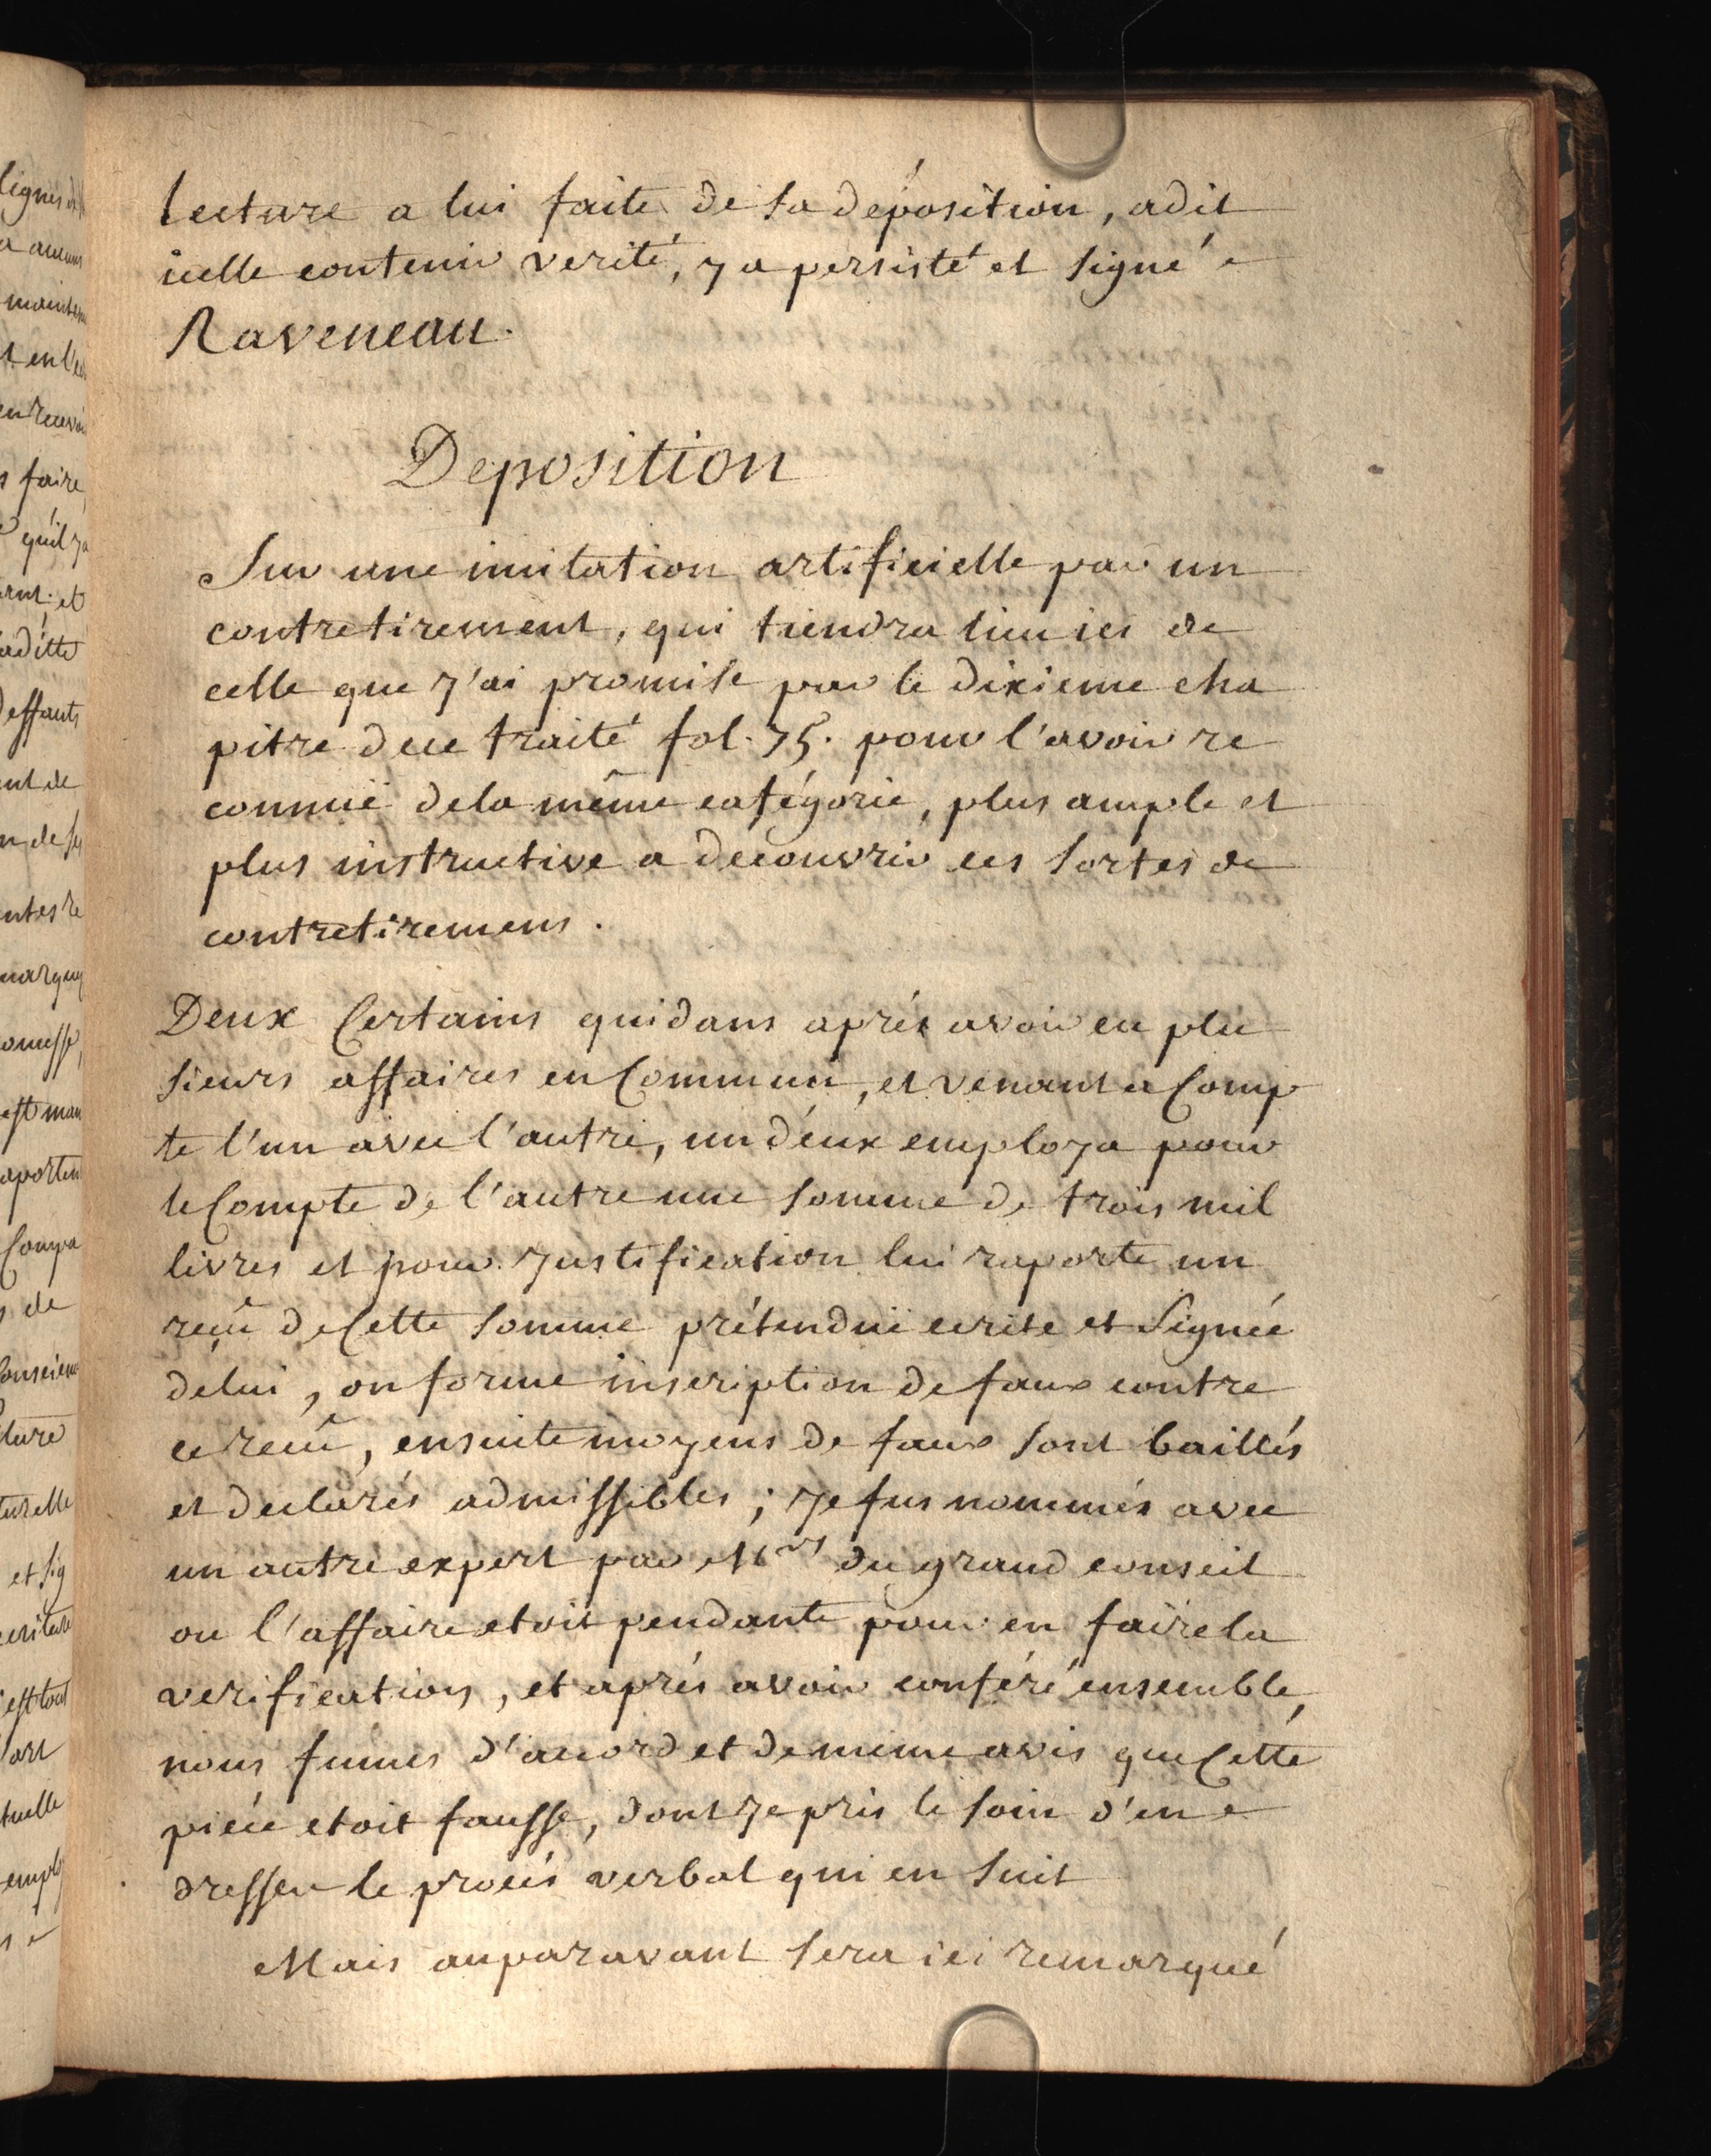 lecture a lui faite de sa déposition, adit
icelle contenir verité, y a persisté et signé
Raveneau.
Deposition
Sur une imitation artificielle par un
contretirement, qui tiendra lieu ici de
celle que j'ai promise par le dixieme cha
pitre de ce traité fol. 75. pour l'avoir re
connuë de la même catégorie, plus ample et
plus instructive a decouvrir ces sortes de
contretiremens.
Deux Certains quidans aprés avoir eu plu
sieurs affaires en Commun, et venant a Comp
te l'un avec l'autre, un d'eux employa pour
le Compte de l'autre une somme de trois mil
livres et pour justification lui raporte un
reçû de Cette somme prétenduë ecrite et signée
de lui, on forme inscription de faux contre
ce recû, ensuite moyens de faux sont baillés
et declarés admissibles ; je fus nommés avec
un autre expert par Mrs du grand conseil
ou l'affaire etoit pendante pour en faire la
verification, et aprés avoir conféré ensemble,
nous fumes d'acord et de meme avis que Cette
piéce etoit fausse, dont je pris le soin d'en
dresser le procés verbal qui en suit
Mais auparavant sera ici remarqué